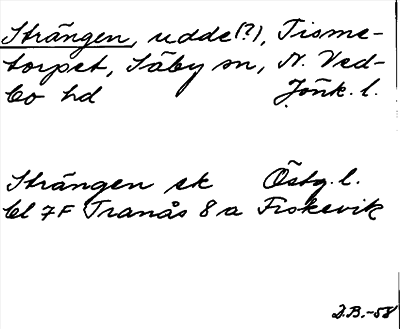 Strängen, udde(?), Tisme-
torpet, Säby sn, N. Ved-
bo hd Jönk. l.
Strängen ek Östg. l.
bl 7F Tranås 8 a Fiskevik
D.B.-58